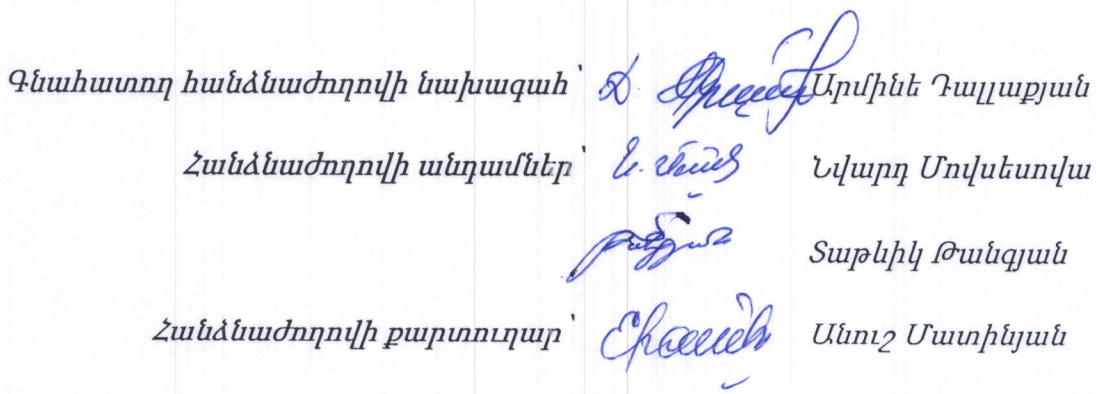 Գնահատող հանձնաժողովի նախագահ՝ Արմինե Դալլաքյան
Հանձնաժողովի անդամներ՝ Նվարդ Մովսեսովա
Տաթևիկ Թանգյան
Հանձնաժողովի քարտուղար՝ Անուշ Մատինյան